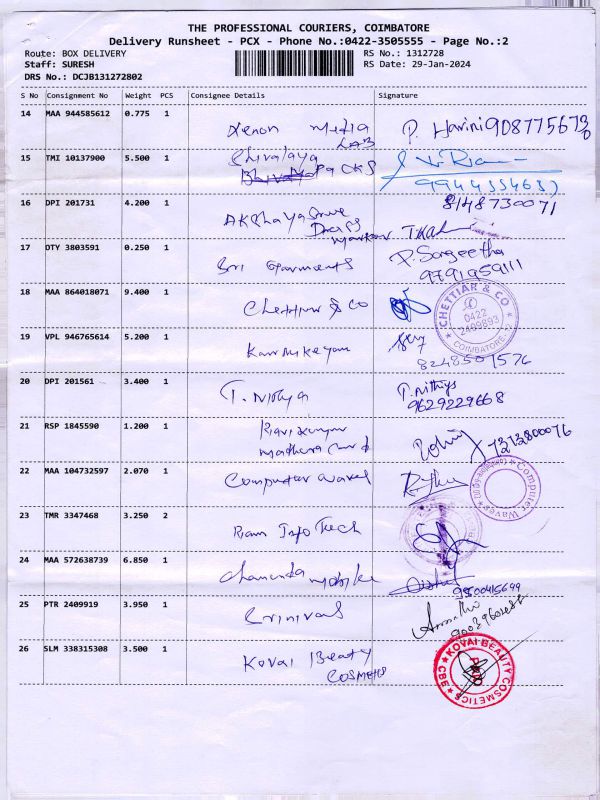 THE PROFESSIONAL COURIERS, COIMBATORE
Delivery Runsheet - PCX - Phone No.:0422-3505555 - Page No.:2
Route: BOX DELIVERY
RS No.: 1312728
Staff: SURESH
RS Date: 29-Jan-2024
DRS No.: DCJB131272802
S No Consignment No Weight PCS Consignee Details Signature
14 MAA 944585612 0.775 1 Xenon Media LAB P. Harini
15 TMI 10137900 5.500 1 Shivalaya PACKS
16 DPI 201731 4.200 1 AKShaya 8148730071
17 OTY 3803591 0.250 1 Sri Garments P. Sangeetha
9791959111
18 MAA 864018071 9.400 1 Chettiar & CO
CHETTIAR & CO
0422
2409893
COIMBATORE
19 VPL 946765614 5.200 1 Karthikeyan
8248501576
20 DPI 201561 3.400 1 T. Nithya T. Nithya
9629229668
21 RSP 1845590 1.200 1 7373800076
22 MAA 104732597 2.070 1 Computer waves
Computer Waves
23 TMR 3347468 3.250 2 Ram Info Tech
24 MAA 572638739 6.850 1 Chamunda Mobile
9500415699
25 PTR 2409919 3.950 1 Srinivas
26 SLM 338315308 3.500 1 Kovai Beauty
COSMETICS
KOVAI BEAUTY COSMETICS
CBE